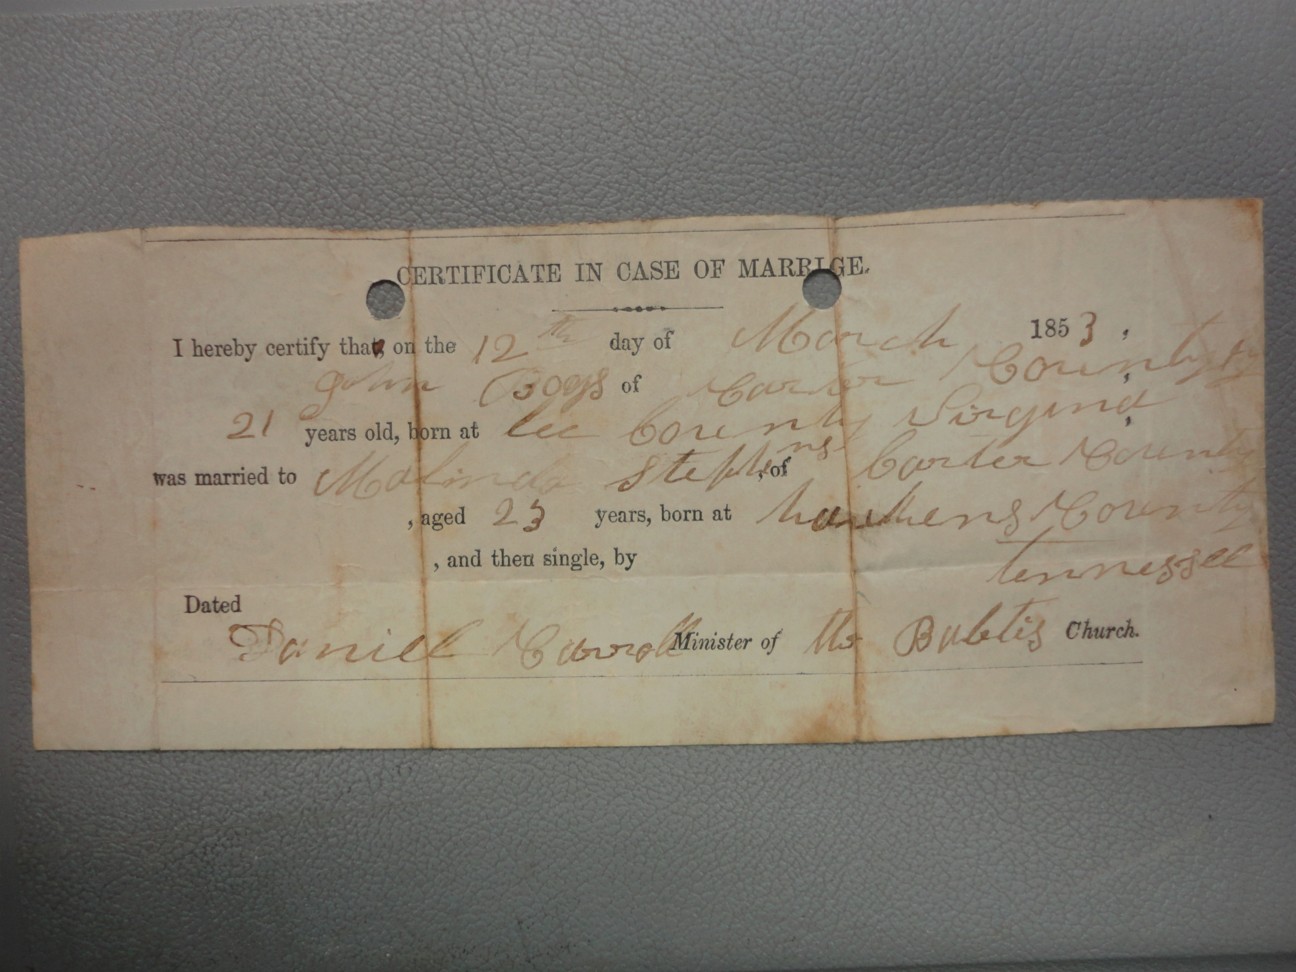 CERTIFICATE IN CASE OF MARRIGE.
I hereby certify that, on the 12th day of March 1853,
John Bogs of Carter County Ky
21 years old, born at Lee County Virgina,
was married to Malinda Stephens, of Carter County
, aged 23 years, born at hawkens County
, and then single, by tennessee
Dated
Daniell Carroll Minister of the Babtis Church.